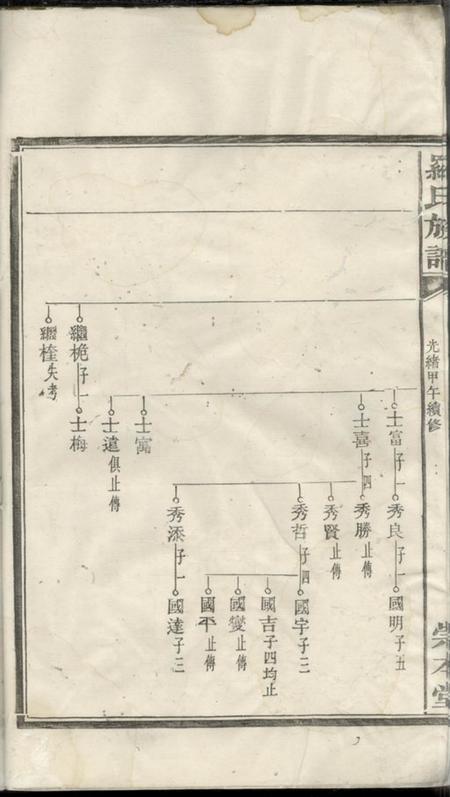 羅氏族譜
光緒甲午續修
崇本堂
士富子一
秀良子一
國明子五
士喜子四
秀勝止傳
秀賢止傳
秀哲子四
國宇子三
國吉子四均止
國變止傳
國平止傳
秀添子一
國達子三
士寓
士遠俱止傳
繼桅子一
士梅
繼樘失考